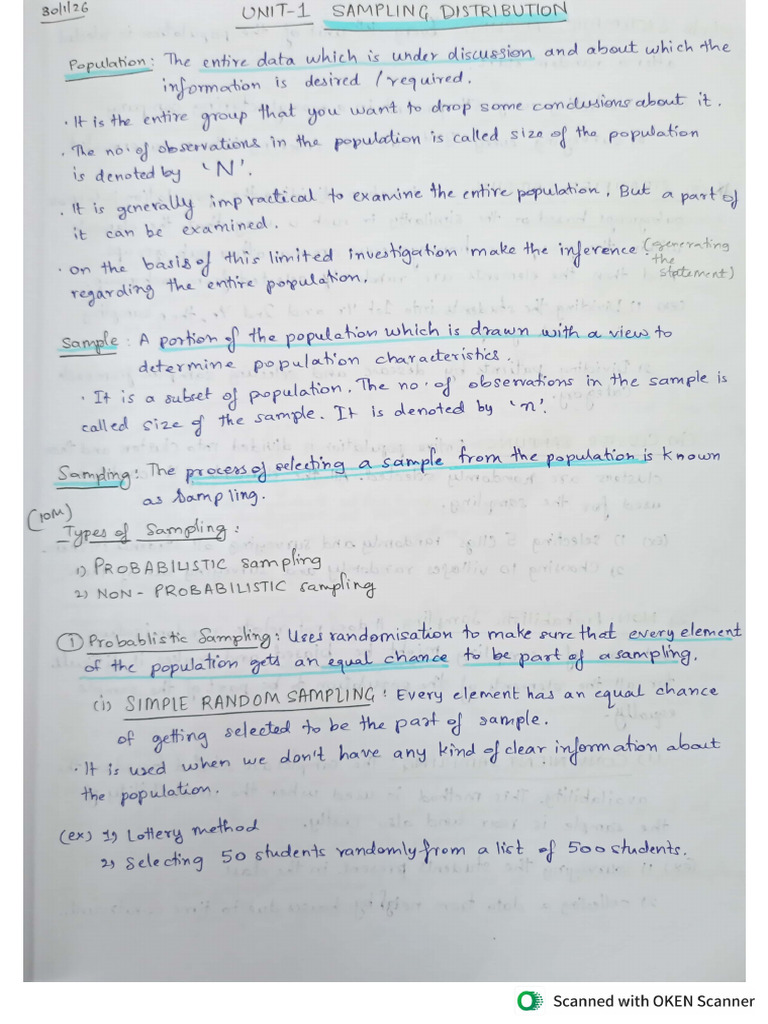 30/1/26
UNIT-1 SAMPLING DISTRIBUTION
Population: The entire data which is under discussion and about which the
information is desired / required.
· It is the entire group that you want to drop some conclusions about it.
· The no: of observations in the population is called size of the population
is denoted by 'N'.
· It is generally impractical to examine the entire population. But a part of
it can be examined.
· on the basis of this limited investigation make the inference (generating
the
statement)
regarding the entire population.
Sample: A portion of the population which is drawn with a view to
determine population characteristics.
· It is a subset of population. The no. of observations in the sample is
called size of the sample. It is denoted by 'n'.
Sampling: The process of selecting a sample from the population is known
as sampling.
(10M)
Types of Sampling:
1) PROBABILISTIC sampling
2) NON - PROBABILISTIC sampling
① Probablistic Sampling: Uses randomisation to make sure that every element
of the population gets an equal chance to be part of a sampling.
(i) SIMPLE RANDOM SAMPLING: Every element has an equal chance
of getting selected to be the part of sample.
· It is used when we don't have any kind of clear information about
the population.
(ex) 1) Lottery method
2) Selecting 50 students randomly from a list of 500 students.
Scanned with OKEN Scanner